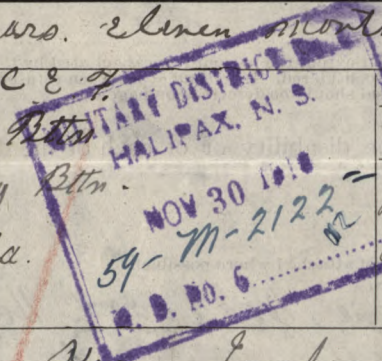 ars. Eleven month
C E F.
Bttn
y Bttn.
a.
MILITARY DISTRICT No.
HALIFAX, N. S.
NOV 30 1918
54-M-2122
M. D. No. 6